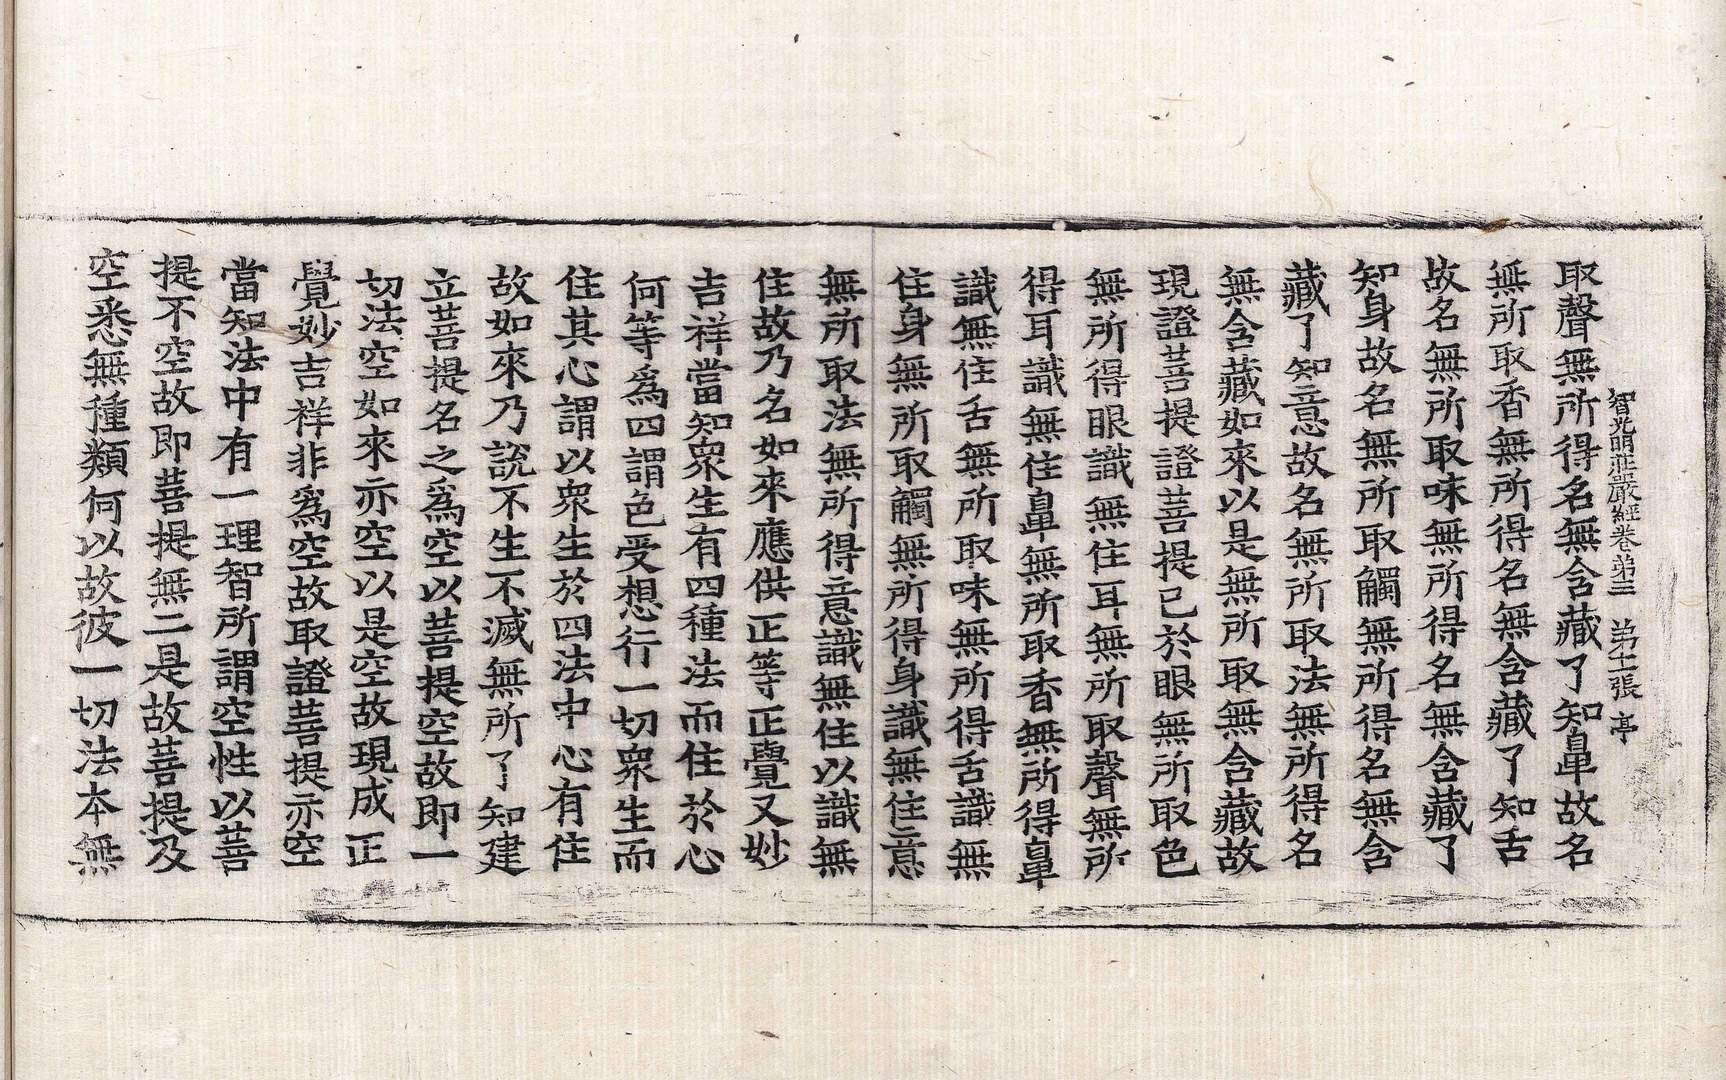 智光明莊嚴經卷第三　第十一張　亭
取聲無所得名無含藏了知鼻故名
無所取香無所得名無含藏了知舌
故名無所取味無所得名無含藏了
知身故名無所取觸無所得名無含
藏了知意故名無所取法無所得名
無含藏如來以是無所取無含藏故
現證菩提證菩提已於眼無所取色
無所得眼識無住耳無所取聲無所
得耳識無住鼻無所取香無所得鼻
識無住舌無所取味無所得舌識無
住身無所取觸無所得身識無住意
無所取法無所得意識無住以識無
住故乃名如來應供正等正覺又妙
吉祥當知衆生有四種法而住於心
何等爲四謂色受想行一切衆生而
住其心謂以衆生於四法中心有住
故如來乃說不生不滅無所了知建
立菩提名之爲空以菩提空故即一
切法空如來亦空以是空故現成正
覺妙吉祥非爲空故取證菩提亦空
當知法中有一理智所謂空性以菩
提不空故即菩提無二是故菩提及
空悉無種類何以故彼一切法本無